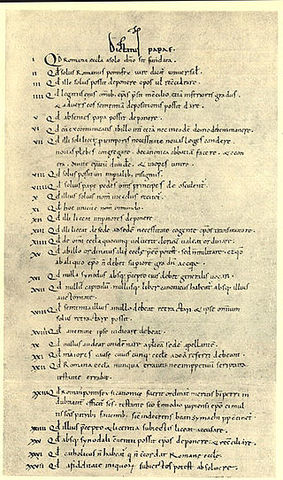 Dictatus papae.
I Qd Romana eccla a solo dno sit fundata.
II Qd solus Romanus pontifex iure dicat universal
III Qd ille solus possit deponere epos vl reconciliare
IIII Qd legatus eius omib epis presit in concilio etia inferioris gradus
& adversus eos sententia depositionis possit dare.
V Qd absentes papa possit deponere.
VI Qd cu excommunicatis ab illo inter cetera nec in eade domo debem manere.
VII Qd illi soli licet p temporis necessitate novas leges condere
novas plebes congregare. de canonica abbatia facere. & e con
tra. divite epatu dividere & inopes unire.
VIII Qd solus possit uti imperialib insigniis.
VIIII Qd solius pape pedes oms principes de osculent
X Qd illius solius nom in ecclis recitet
XI Qd hoc unicum nom in mundo.
XII Qd illi liceat imperatores deponere
XIII Qd illi liceat de sede ad sede necessitate cogente epos transmutare.
XIIII Qd de omi eccla quocunq voluerit clericu valeat ordinare.
XV Qd ab illo ordinatus alii eccle pesse potest sed militare. et qd
ab aliquo epo n debet supiore gradu accipe.
XVI Qd nulla synodus absq pcepto eius debet generalis vocari.
XVII Qd nullu capitulum nullusq liber canonicus habeat absq illi
auctoritate.
XVIII Qd sententia illius a nullo debeat retractari & ipse omium
solus retractare possit
XVIIII Qd a nemine ipse iudicari debeat.
XX Qd nullus audeat condemnare aplica sede apellante.
XXI Qd maiores cause cuiuscunq eccle ad ea referri debeant.
XXII Qd Romana eccla nunqua erravit nec imppetuu scriptura
testante errabit.
XXIII Qd Romanus pontifex si canonice fuerit ordinatus meritis b petri in
dubitant efficit scs. testante sco Ennodio papiensi epo ei mul
tis scis patrib faventib sic in decretis b symachi pp continet
XXIIII Qd illius pcepto & licentia subiectis liceat accusare.
XXV Qd absq synodali conventu possit epos deponere & reconciliare.
XXVI Qd catholicus n habeat q n concordat Romane eccle.
XXVII Qd a fidelitate iniquor subiectos potest absolvere.